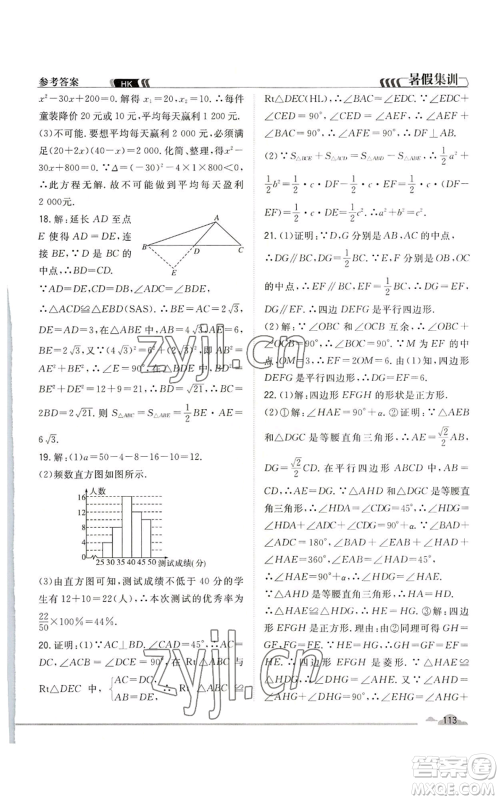 参考答案 HK
暑假集训
x²-30x+200=0. 解得 x₁=20, x₂=10, ∴每件
童装降价 20 元或 10 元,平均每天赢利 1 200 元.
(3)不可能. 要想平均每天赢利 2 000 元,必须
满足(20+2x)(40-x)=2 000. 化简、整理,得 x²
-30x+800=0. ∵Δ=(-30)²-4×1×800<0,
∴此方程无解. 故不可能做到平均每天盈利
2 000 元.
18. 解:延长 AD 至点
E 使得 AD=DE,连
接 BE,∵D 是 BC 的
中点,∴BD=CD.
A
B
D
C
E
∵AD=AD,∠ADC=∠EDB,
∴△ACD≌△EBD(SAS). ∴BE=AC=2√3,
DE=AD=3. ∵AB=4√3,AE=AD+DE=6,
BE=2√3,∴(2√3)²+6²=(4√3)². ∴∠E=90°.
∴BD²=BE²+DE²=12+9=21. ∴BD=√21,
BC=2BD=2√21. S△ABC=S△ABE=1/2 BE·AE=
6√3.
19. 解:(1)a=50-4-8-16-10=12.
(2)频数直方图如图所示.
人数
16
12
10
8
4
25 30 35 40 45 50 测试成绩(分)
(3)由直方图可知,测试成绩不低于 40 分的学
生有 12+10=22(人),∴本次测试的优秀率为
22/50×100%=44%.
20. 证明:(1)∵AC⊥BD,∠CAD=45°,∴AC=
DC,∠ACB=∠DCE=90°,在 Rt△ABC 与
Rt△DEC 中, { AC=DC, AB=DE, ∴Rt△ABC≌
Rt△DEC(HL),∴∠BAC=∠EDC. ∵∠EDC+
∠CED=90°,∠CED=∠AEF,∴∠AEF+
∠BAC=90°,∴∠AFE=90°,∴DF⊥AB.
(2)∵S△BCE+S△ACD=S△ABD-S△ABE,∴1/2a²+
1/2b²=1/2·c·DF-1/2·c·EF=1/2·c·(DF-
EF)=1/2·c·DE=1/2c²,∴a²+b²=c².
21. (1)证明:∵D、G 分别是 AB、AC 的中点,
∴DG∥BC,DG=1/2BC. ∵E、F 分别是 OB、OC
的中点,∴EF∥BC,EF=1/2BC. ∴DG=EF,
DG∥EF,∴四边形 DEFG 是平行四边形.
(2)解:∵∠OBC 和∠OCB 互余,∴∠OBC+
∠OCB=90°,∴∠BOC=90°,∵M 为 EF 的中
点,OM=3,∴EF=2OM=6. 由(1)知四边形
DEFG 是平行四边形,∴DG=EF=6.
22. (1)四边形 EFGH 的形状是正方形.
(2)①解:∠HAE=90°+α. ②证明:∵△AEB
和△DGC 是等腰直角三角形,∴AE=√2/2AB,
DG=√2/2CD,在平行四边形 ABCD 中,AB=CD,
∴AE=DG. ∵△AHD 和△DGC 是等腰直
角三角形,∴∠HDA=∠CDG=45°,∴∠HDG
=∠HDA+∠ADC+∠CDG=90°+α=∠HAE.
∵△AHD 是等腰直角三角形,∴HA=HD,
∴△HAE≌△HDG,∴HE=HG. ③解:四边形
EFGH 是正方形. 理由:由②同理可得:GH=
GF,FG=FE. ∵HE=HG,∴GH=GF=EF=
HE,∴四边形 EFGH 是菱形. ∵△HAE≌
△HDG,∴∠DHG=∠AHE. ∵∠AHD=
∠AHG+∠DHG=90°,∴∠EHG=∠AHG+
∠AHE=90°,∴四边形 EFGH 是正方形.
113
zyjl.cn
zyjl.cn